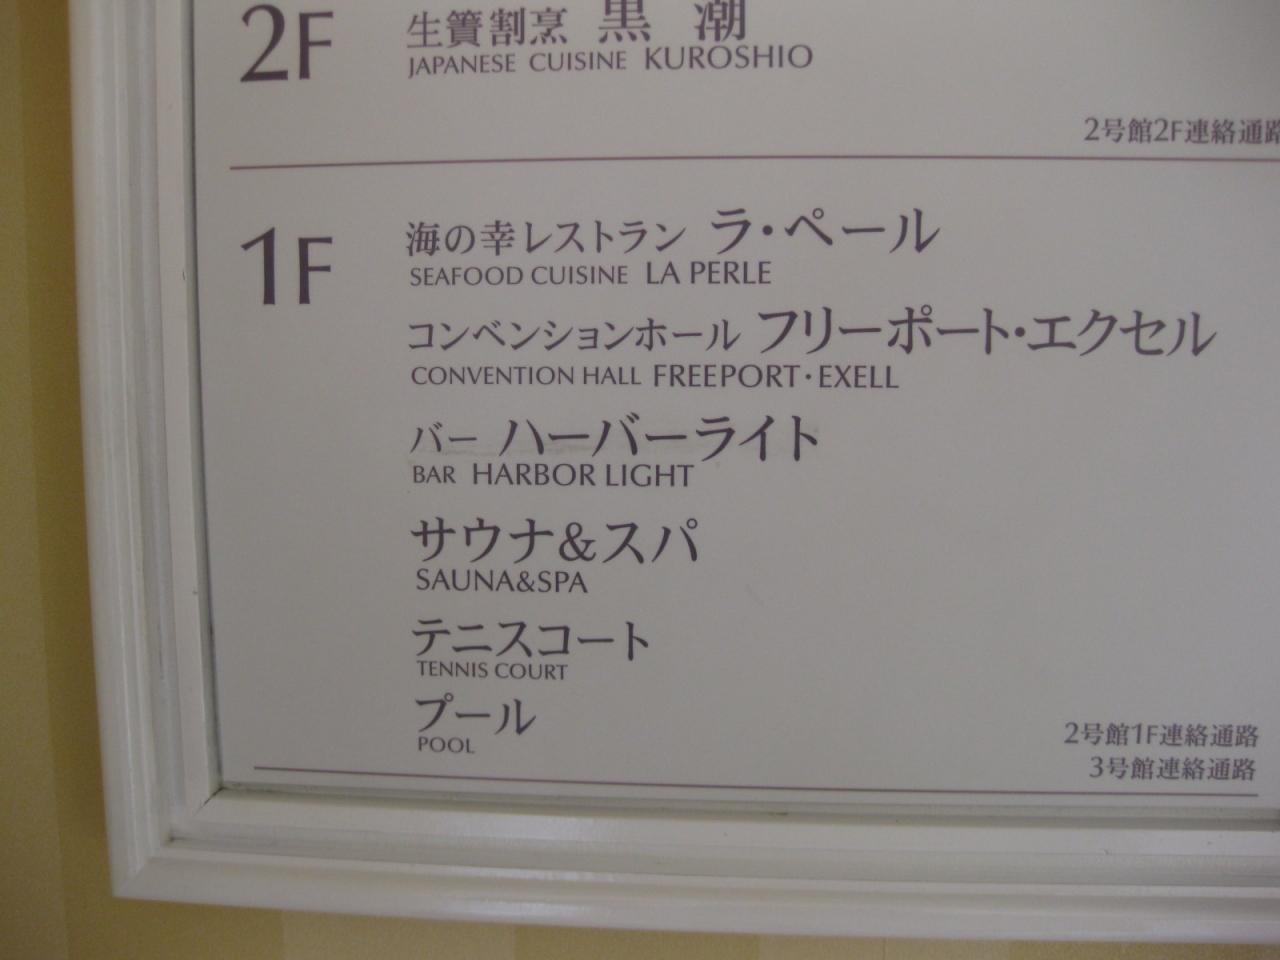 2F
生簀割烹 黒潮
JAPANESE CUISINE KUROSHIO
2号館2F連絡通路
1F
海の幸レストラン ラ・ペール
SEAFOOD CUISINE LA PERLE
コンベンションホール フリーポート・エクセル
CONVENTION HALL FREEPORT・EXELL
バー ハーバーライト
BAR HARBOR LIGHT
サウナ&スパ
SAUNA&SPA
テニスコート
TENNIS COURT
プール
POOL
2号館1F連絡通路
3号館連絡通路